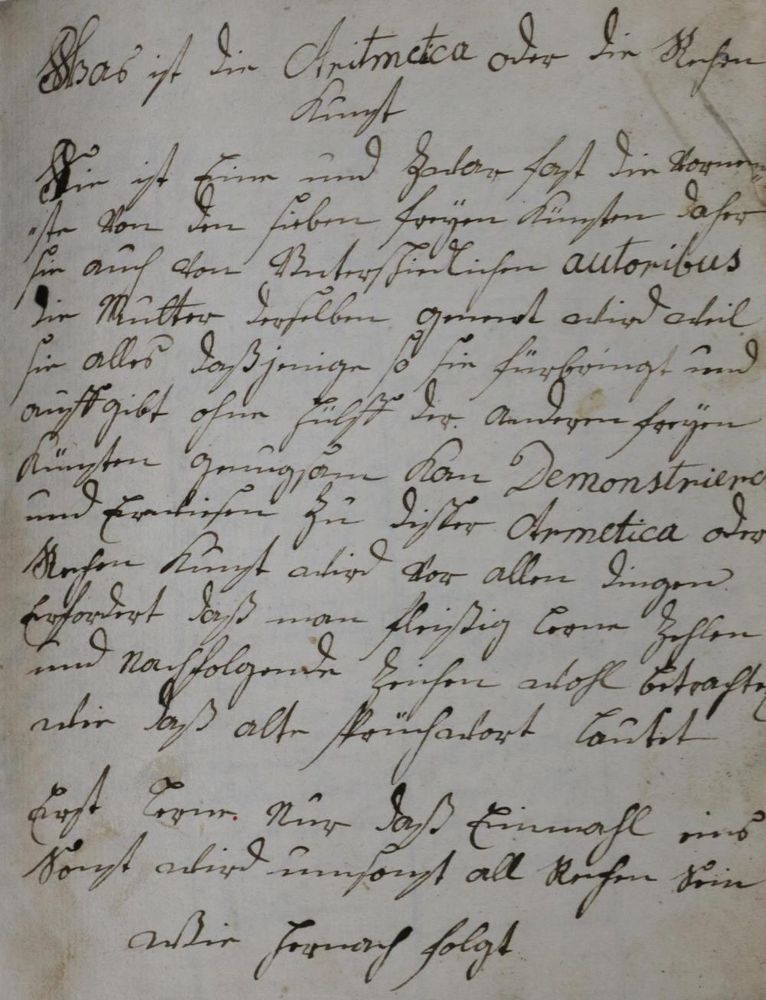 Was ist die Aritmetca oder die Rechen
Kunst
Sie ist Eine und Zwar fast die Vornem
ste Von den sieben freyen Künsten daher
sie auch von Unterschiedlichen autoribus
die Mutter derselben genent wird weil
sie alles daßjenige so sie fürbringt und
auffgibt ohne Hülff der anderen freyen
Künsten genugsam kan Demonstriere
und Erweisen Zu disser Armetica oder
Rechen Kunst wird Vor allen dingen
Erfordert daß man fleißig lerne Zehlen
und Nachfolgende Zeichen wohl betrachte
wie daß alte sprüchwort lautet
Erst lerne Nur daß Einmahl eins
Sonst wird umsonst all Rechen Sein
Wie hernach folgt